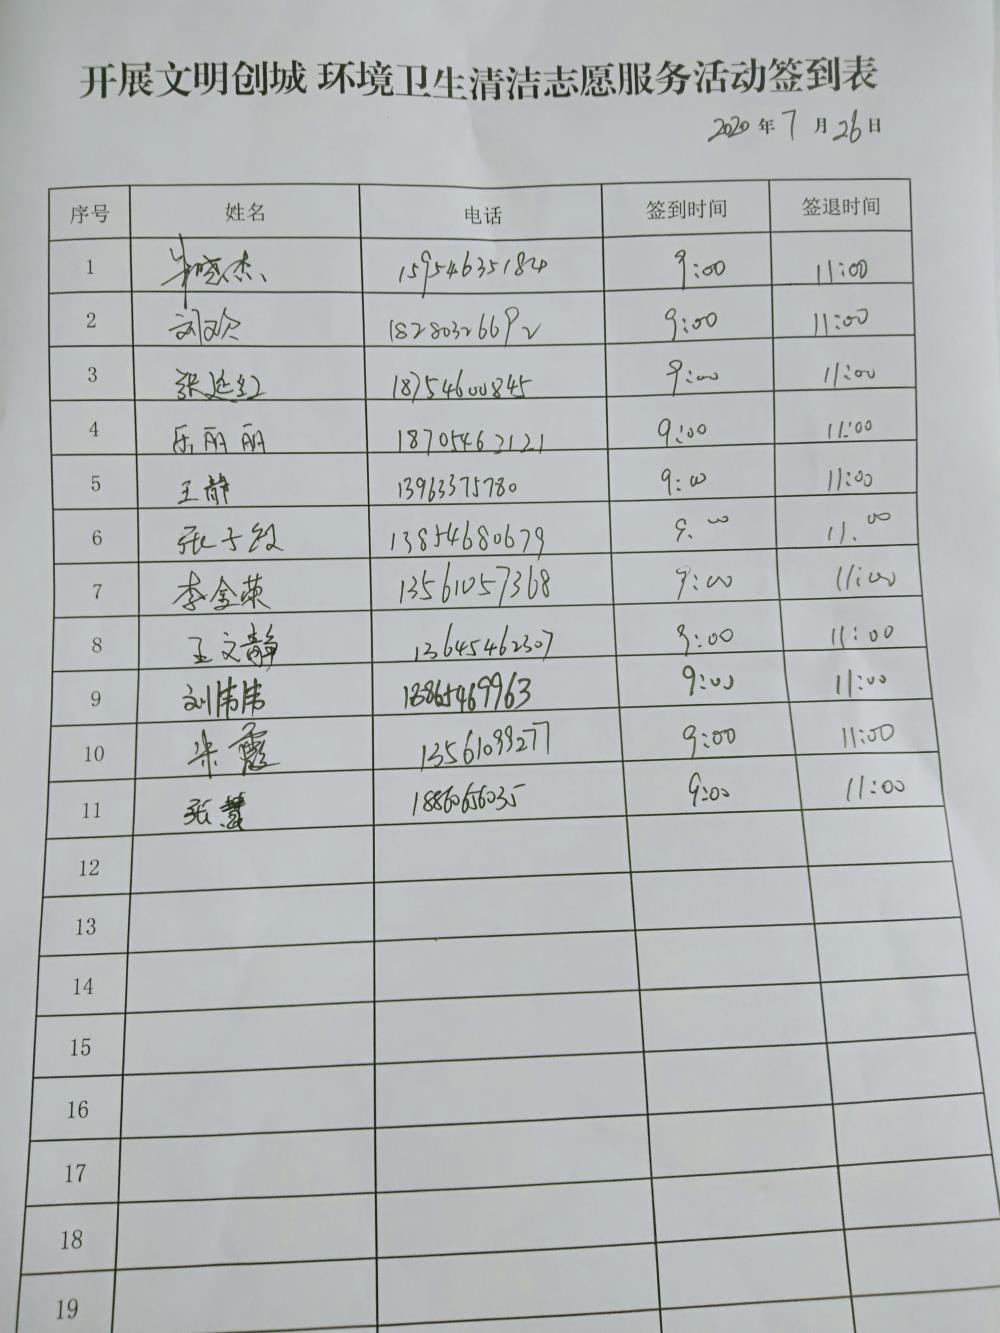 开展文明创城 环境卫生清洁志愿服务活动签到表
2020年7月26日
序号 姓名 电话 签到时间 签退时间
1 朱晓杰 15954635184 9:00 11:00
2 刘欢 18280326692 9:00 11:00
3 张延红 18754600845 9:00 11:00
4 乐丽丽 18705462121 9:00 11:00
5 王静 13963375780 9:00 11:00
6 张 13854680679 9:00 11:00
7 李金荣 13561057368 9:00 11:00
8 王文静 13645462307 9:00 11:00
9 刘伟伟 13865469963 9:00 11:00
10 朱霞 13561099277 9:00 11:00
11 张慧 18860656035 9:00 11:00
12
13
14
15
16
17
18
19